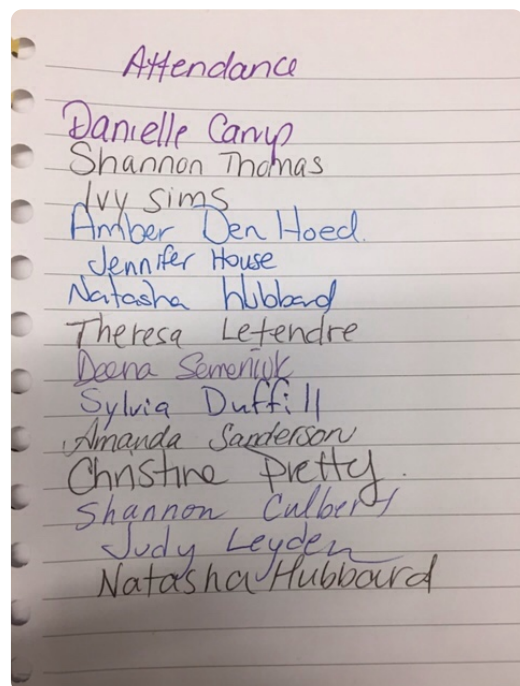 Attendance
Danielle Camp
Shannon Thomas
Ivy Sims
Amber Den Hoed.
Jennifer House
Natasha Hubbard
Theresa Letendre
Deena Semeniuk
Sylvia Duffill
Amanda Sanderson
Christine Pretty.
Shannon Culbert
Judy Leyden
Natasha Hubbard